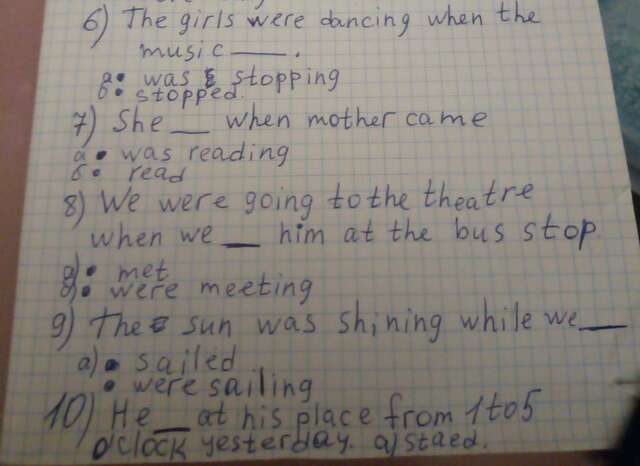 6) The girls were dancing when the
music ___.
а• was stopping
б• stopped.
7) She __ when mother came
а• was reading
б• read
8) We were going to the theatre
when we __ him at the bus stop
а)• met
б)• were meeting
9) The sun was shining while we __
a)• sailed
• were sailing
10) He __ at his place from 1 to 5
o'clock yesterday. a) staed.